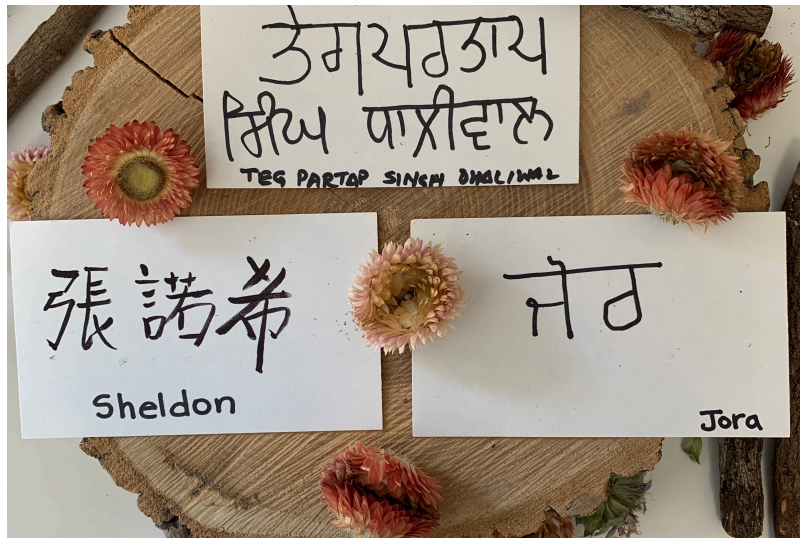 ਤੇਗਪਰਤਾਪ
ਸਿੰਘ ਧਾਲੀਵਾਲ
TEG PARTAP SINGH DHALIWAL
張諾希
Sheldon
ਜੋਰ
Jora